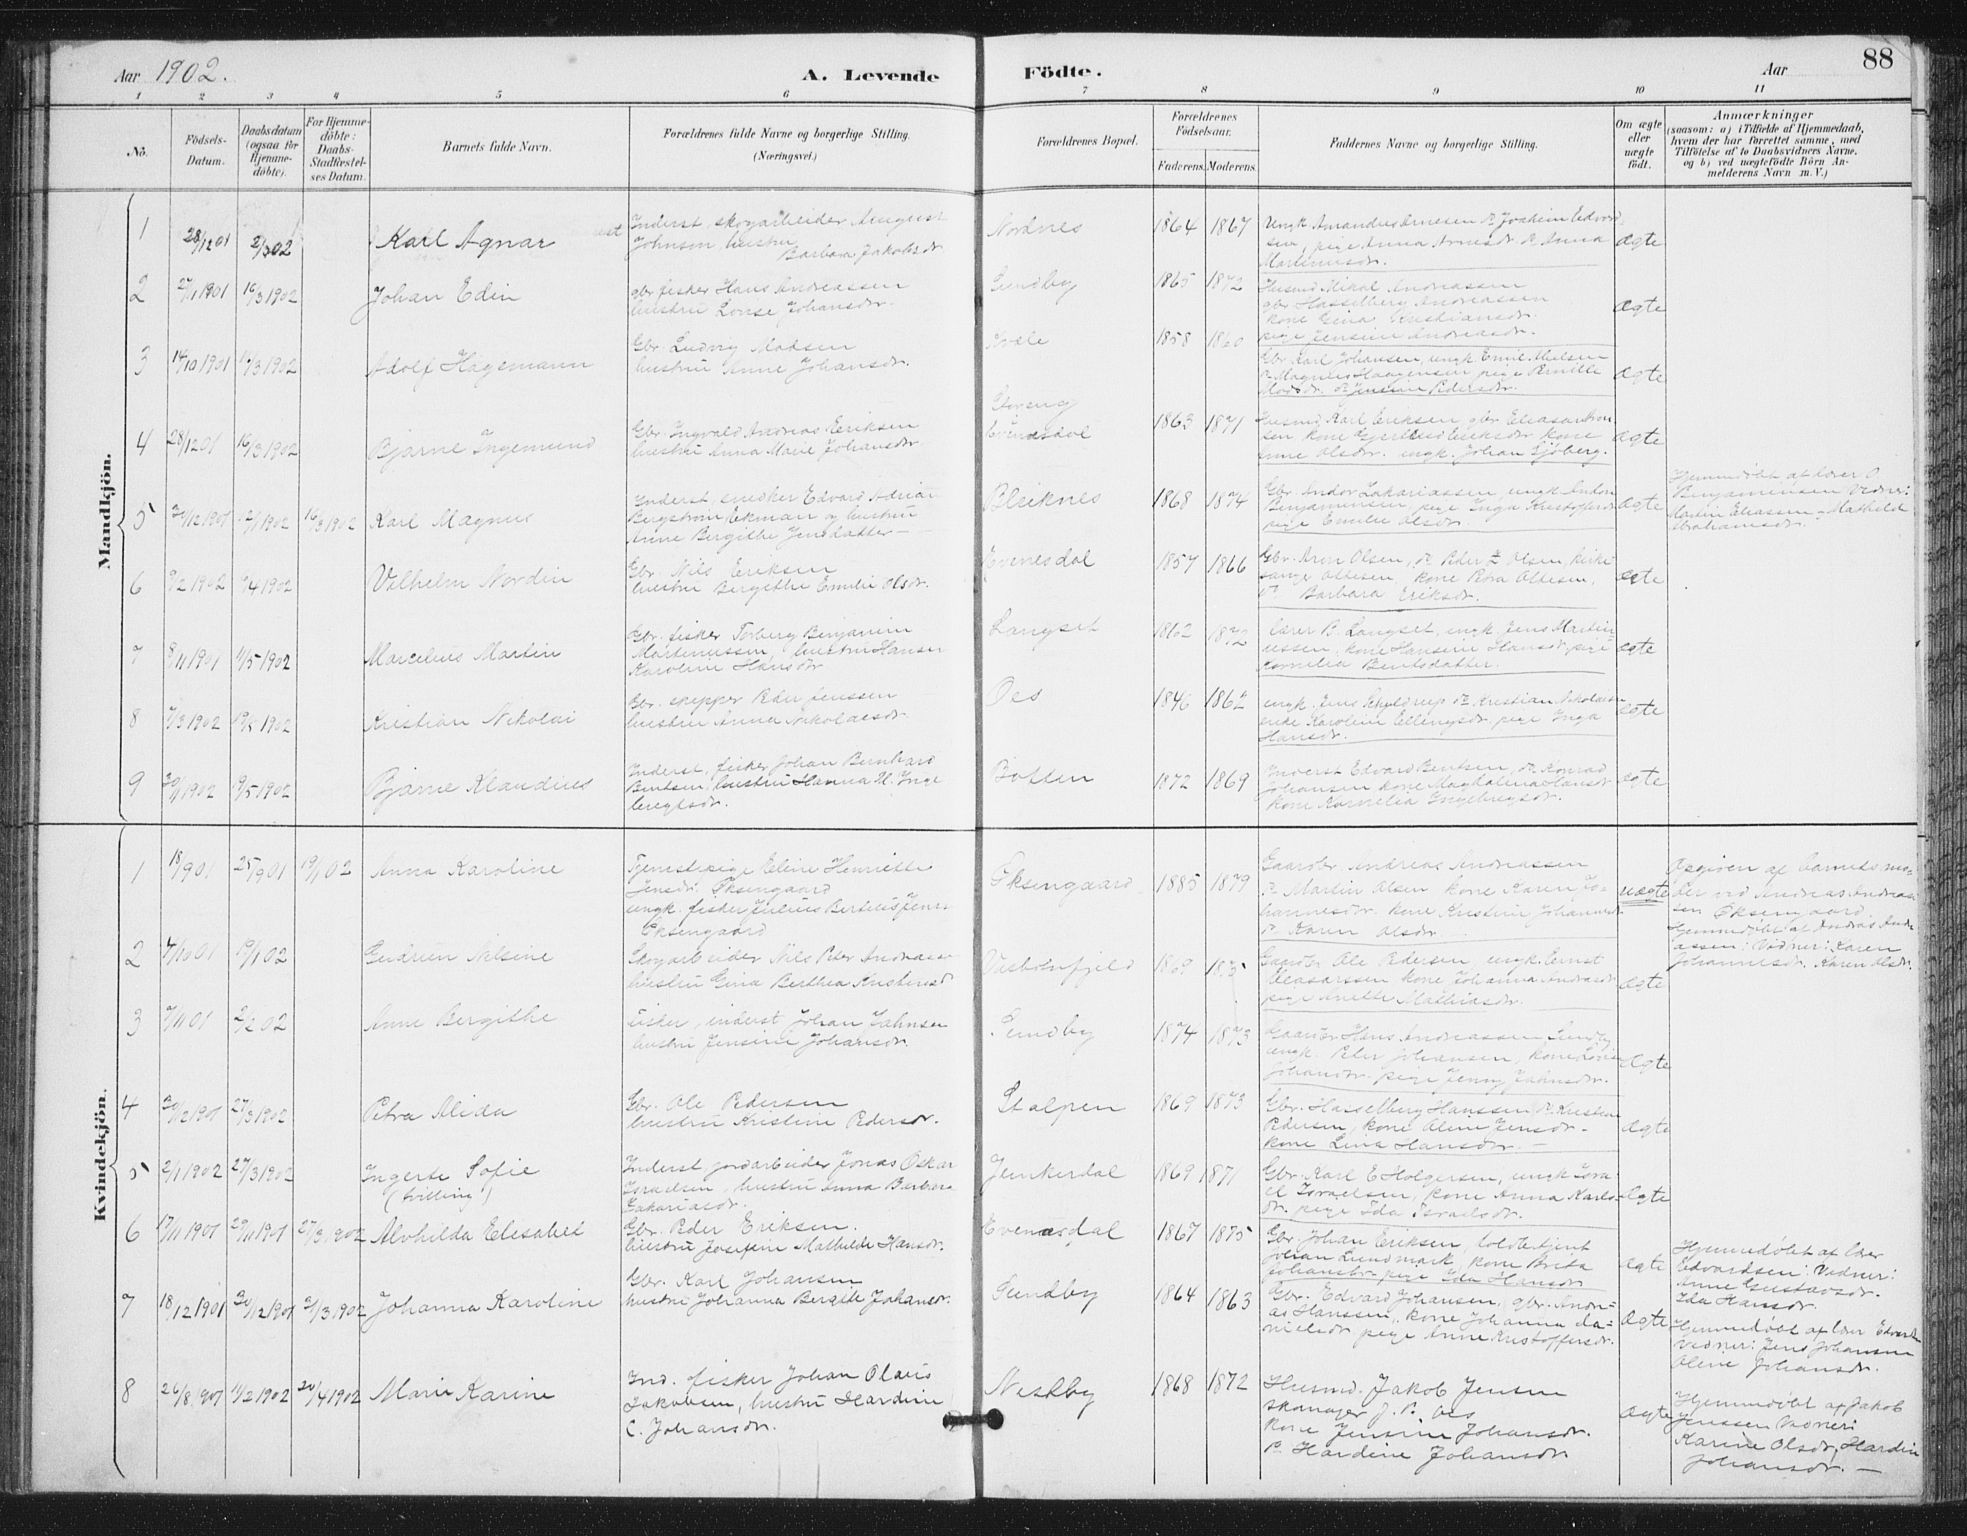 Aar 1902.
A. Levende
Födte.
Aar
88
1 2 3 4 5 6 7 8 9 10 11
No.
Födsels-
Datum.
Daabsdatum
(ogsaa for
Hjemme-
døbte).
For Hjemme-
døbte:
Daabs-
Stadfæstel-
ses Datum.
Barnets fulde Navn.
Forældrenes fulde Navne og borgerlige Stilling.
(Næringsvei.)
Forældrenes Bopæl.
Forældrenes
Födselsaar.
Faderens. Moderens.
Faddernes Navne og borgerlige Stilling.
Om ægte
eller
uægte
födt.
Anmærkninger
(saasom: a) i Tilfælde af Hjemmedaab,
hvem der har forrettet samme, med
Tilföielse af to Daabsvidners Navne,
og b) ved uægtefödte Börn An-
melderens Navn m. V.)
Mandkjön.
1 28/12 01 2/3 02 Karl Agnar
Inderst, skogarbeider August
Johnsen hustru
Barbara Jakobsdr.
Nordnes 1864 1867
Ungk Amandus Arnesen Joakim Edvard
sen, pige Anna Arnesdr. Anna
Martinusdr.
ægte
2 27/11 1901 16/3 1902 Johan Edin
gbr. fisker Hans Andreassen
hustru Lovise Johansdr.
Sundby 1865 1872
Husmd Mikal Andreassen
gbr. Hasselberg Andreassen
kone Gina Kristiansdr.
pige Jensine Andreasdr.
ægte
3 14/10 1901 3 1902 Adolf Hagemann
Gbr. Ludvig Madsen
hustru Anne Johansdr.
Kvæle 1858 1860
Gbr. Karl Johansen, ungk. Emil Nielsen
Magnus Haagensen pige Pernille
Madsdr. Jensine Pedersdr.
ægte
4 28/12 01 16/3 1902 Bjarne Ingemund
Gbr. Ingvald Andreas Eriksen
hustru Anna Marie Johansdr.
Storeng
Evenesdal 1863 1871
Husmd Karl Eriksen gbr. Eleasar
sen kone Eriksdr. kone
Anne Olsdr. ungk. Johan Sjöberg.
ægte
5 12 1901 1902 16/3 1902 Karl Magnus
Inderst, snedker Edvard Adrian
Bergström Ekman og hustru
Anne Bergithe Jensdatter
Bleiknes 1868 1874
Gbr. Andor Zakariassen, ungk Anton
Benjaminsen, pige Inga Kristoffersdr
pige Emilie Olsdr.
ægte
Hjemmedöbt af lærer O.
Benjaminsen Vidner:
Martin Eliassen - Mathilde
Abrahamsdr.
6 9/2 1902 4 1902 Vilhelm Nordin
Gbr. Nils Eriksen
hustru Bergithe Emilie Olsdr.
Evenesdal 1857 1866
Gbr. Aron Olsen, Peder Olsen, kirke
sanger Ottesen, kone Ottesen,
Barbara Eriksdr.
ægte
7 8/11 1901 11/5 1902 Marcelius Martin
Gbr. fisker Torberg Benjamin
Martinussen, hustru Hansen
Karoline Hansdr.
Langset 1862 1872
lærer B. Langset, ungk Jens Martin
ussen, kone Hansine Hansdr, pige
Kornelia Bentsdatter.
ægte
8 7/3 1902 1902 Kristian Nikolai
Gbr. skipper Peder Jenssen
hustru Anna Nikolaisdr.
Oes 1846 1862
ungk. Jens Schjeldrup Kristian Nikolaisen
enke Karoline Ellingsdr. pige Inga
Hansdr.
ægte
9 20/1 1902 9/5 1902 Bjarne Klaudius
Inderst, fisker Johan Bernhard
Bentsen, hustru Hanna M. Inge
bregtsdr.
Botten 1872 1869
Inderst Edvard Bentsen, Konrad
Johansen kone Magdalena Hansdr
kone Kornelia Ingebregtsdr.
ægte
Kvindekjön.
1 18/9 01 25/9 01 19/1 02 Anna Karoline
Tjenestepige Eline Henriette
Jensdr. Oksengaard
ungk. fisker Julius Bertius Jensen
Oksengaard
Oksengaard 1885 1879
Gaardbr. Andreas Andreassen
Martin Olsen kone Karen Jo-
hannesdr. kone Kristine Johannesdr
Karen Olsdr.
uægte
Opgiven af barnets mo-
der ved Andreas Andreas-
sen Oksengaard
Hjemmedöbt af Andreas Andre
assen: Vidner: Karen
Johannesdr. Karen Olsdr.
2 4/10 01 19/1 02 Gudrun Nilsine
Skogarbeider Nils Peter Andreassen
hustru Gina Berthea Kristensdr
1869 1875
Gaardbr. Ole Pedersen, ungk Ernst
Eleasarssen kone Johanna Andreasdr
pige Anette Mathiasdr.
ægte
3 7/11 01 2/2 02 Anne Bergithe
fisker, inderst Johan Jahnsen
hustru Jensine Johansdr.
Sundby 1874 1873
Gaardbr Hans Andreassen Sundby
ungk. Peder Johansen, kone Lovise
Johansdr. pige Jenny Jahnsdr.
ægte
4 20/12 1901 27/3 1902 Petra Alida
Gbr. Ole Pedersen
hustru Kristine Pedersdr.
Stolpen 1869 1873
Gbr. Hasselberg Hanssen Kristian
Pedersen, kone Oline Jensdr.
kone Lina Hansdr.
ægte
5 2/1 1902 27/3 1902 Ingerte Sofie
(tvilling)
Inderst, jordarbeider Jonas Oskar
Israelsen, hustru Anna Barbara
Zakariasdr.
Junkerdal 1869 1871
Gbr. Karl E Holgersen, ungk Isra
el Israelsen, kone Anna Karls-
dr. pige Ida Israelsdr.
ægte
6 17/11 1901 29/11 1901 27/3 1902 Alvhilda Elisabet
Gbr. Peder Eriksen.
hustru Josefine Mathilde Hansdr.
Evenesdal 1867 1875
Gbr. Johan Eriksen, toldbetjent
Johan Lundmark, kone Breta
Johansdr. pige Ida Hansdr
ægte
Hjemmedöbt af lærer
Edvardsen: Vidner:
Anne Gustavsdr.
Ida Hansdr.
7 18/12 1901 30/12 1901 31/3 1902 Johanna Karoline
Gbr. Karl Johansen
hustru Johanna Bergitte Johansdr.
Sundby 1864 1863
Gbr. Edvard Johansen, gbr. Andre-
as Hanssen, kone Johanna Da-
nielsdr pige Anne Kristoffersdr.
ægte
Hjemmedöbt af lærer Edvardsen
Vidner: Jens Johansen
Oline Johansdr.
8 26/8 1901 11/2 1902 20/4 1902 Marie Karine
Ind. fisker Johan Olaus
Jakobsen, hustru Hardine
C. Johansdr.
Nestby 1868 1872
Husmd. Jakob Jensen
skomager J. P. Oes
Kone Jensine Johansdr.
Hardine Johansdr
ægte
Hjemmedöbt af Jakob
Jenssen Vidner:
Karine Olsdr, Hardine
Johansdr.